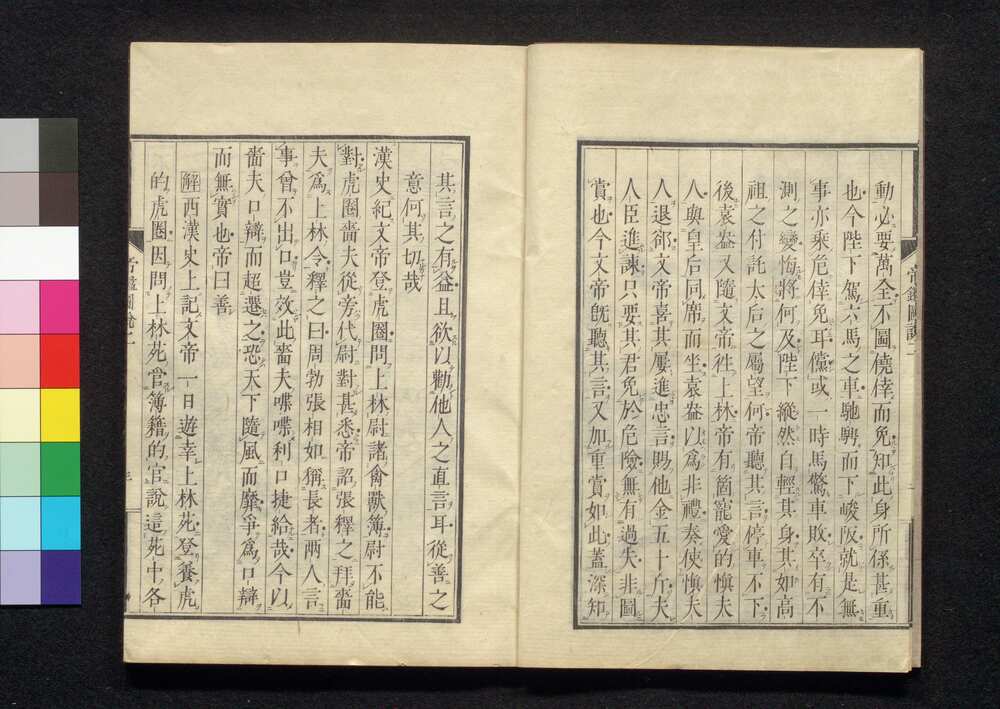 動必要萬全不圖僥倖而免知此身所係甚重
也今陛下駕六馬之車馳騁而下峻阪就是無
事亦乘危倖免耳儻或一時馬驚車敗卒有不
測之變悔將何及陛下縱然自輕其身其如高
祖之付託太后之屬望何帝聽其言停車不下
後袁盎又隨文帝徃上林帝有箇寵愛的愼夫
人與皇后同席而坐袁盎以爲非禮奏使愼夫
人退卻文帝喜其屢進忠言賜他金五十斤夫
人臣進諫只要其君免於危險無有過失非圖
賞也今文帝旣聽其言又加重賞如此蓋深知
其言之有益且欲以勸他人之直言耳從善之
意何其切哉
漢史紀文帝登虎圈問上林尉諸禽獸簿尉不能
對虎圈嗇夫從旁代尉對甚悉帝詔張釋之拜嗇
夫爲上林令釋之曰周勃張相如稱長者兩人言
事曾不出口豈效此嗇夫喋喋利口捷給哉今以
嗇夫口辯而超遷之恐天下隨風而靡爭爲口辯
而無實也帝曰善
解西漢史上記文帝一日遊幸上林苑登養虎
的虎圈因問上林苑官簿籍的官說這苑中各
帝鑑圖說二